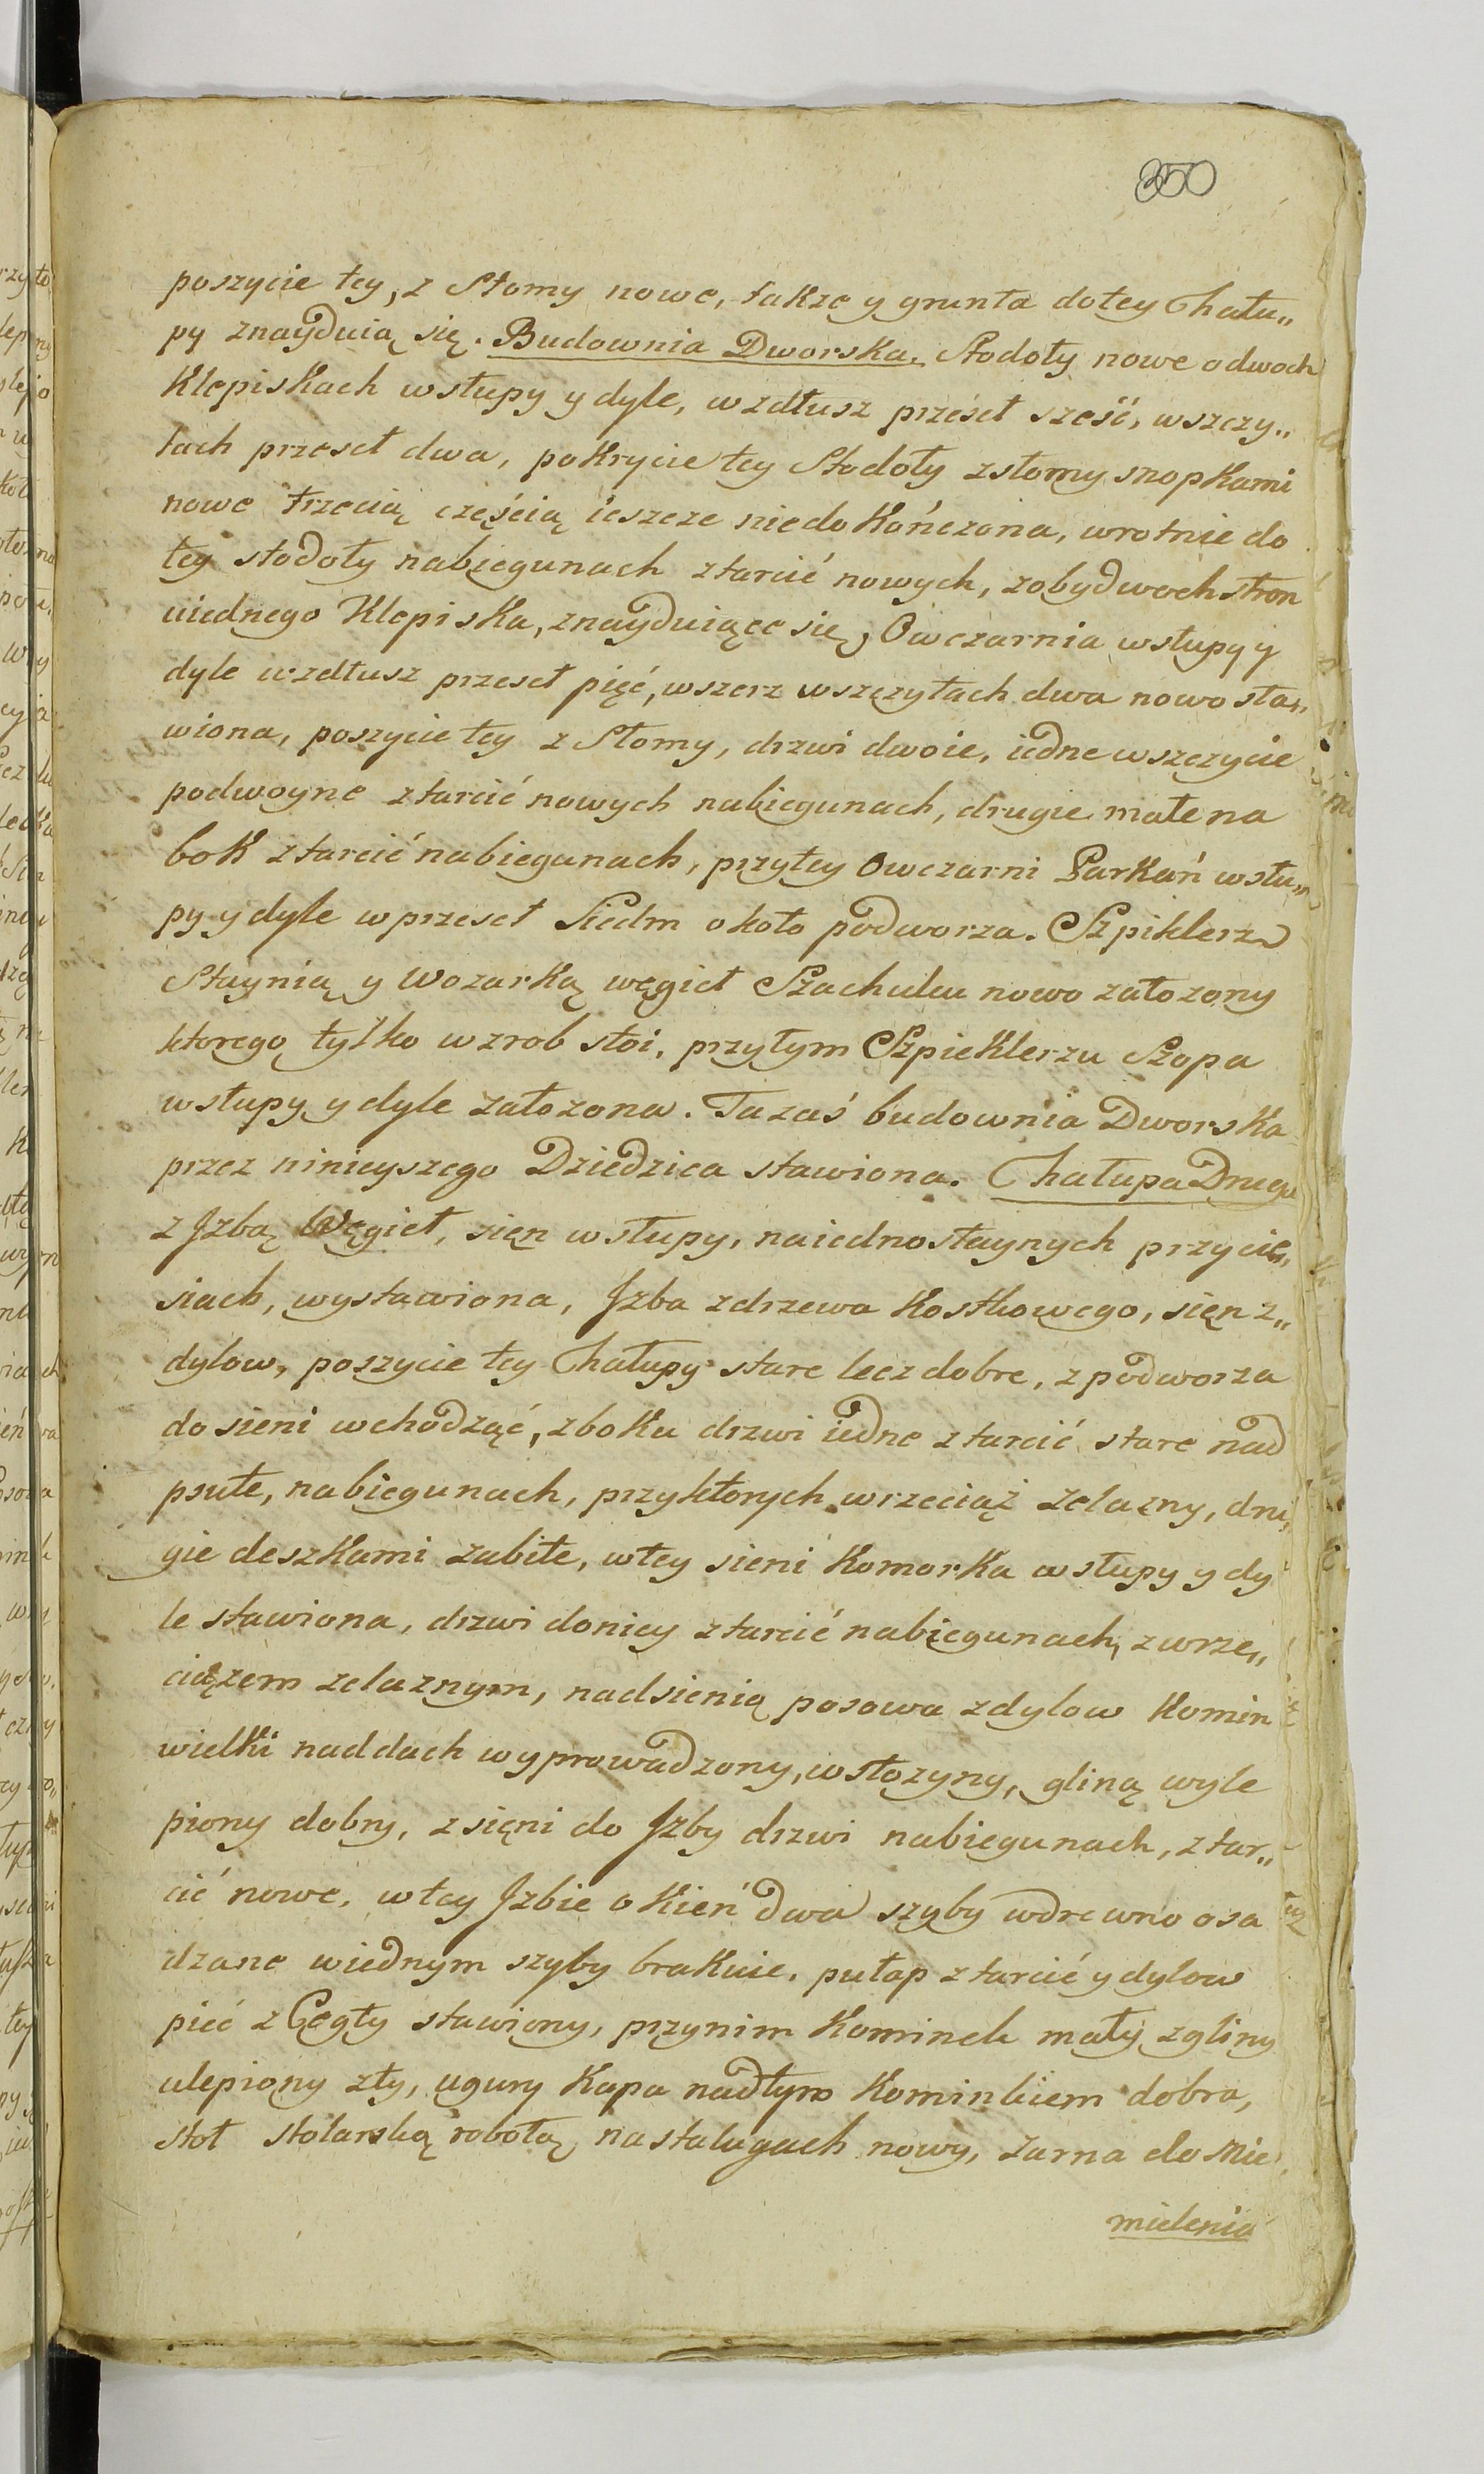 350
poszycie tey, z Słomy nowe, także y grunta do tey Chału„
py znayduią się. Budownia Dworska. Stodoły nowe o dwoch
Klepiskach w słupy y dyle, wzdłusz przeset sześć, w szczy„
tach przeset dwa, pokrycie tey Stodoły z słomy snopkami
nowe trzecią częścią ieszcze niedokończona, wrotnie do
tey stodoły na biegunach z tarcić nowych, z obydwoch stron
u iednego Klepiska, znayduiące się, Owczarnia w słupy y
dyle wzdłusz przeset pięć, wszerz w szczytach dwa nowo sta„
wiona, poszycie tey z Słomy, drzwi dwoie, iedne w szczycie
podwoyne z tarcić nowych na biegunach, drugie małe na
bok z tarcić na biegunach, przy tey Owczarni Parkań w słu„
py y dyle w przeset Siedm około podworza. Szpiklerz
Staynią y Wozarką węgieł Szachulcu nowo założony
ktorego tylko wzrob stoi, przy tym Szpieklerzu Szopa
w słupy y dyle założona. Ta zaś budownia Dworska
przez ninieyszego Dziedzica stawiona. Chałupa Druga
z Jzbą Węgieł, sień w słupy, na iednostaynych przycie„
siach, wystawiona, Jzba z drzewa Kostkowego, sień z„
dylow, poszycie tey Chałupy stare lecz dobre, z podworza
do sieni wchodząć, z boku drzwi iedne z tarcić stare nad
psute, na biegunach, przy ktorych wrzeciąż żelazny, dru„
gie deszkami zabite, w tey sieni Komorka w słupy y dy
le stawiona, drzwi do niey z tarcić na biegunach, z wrze„
ciążem żelaznym, nad sienią posowa z dylow Komin
wielki nad dach wyprowadzony, w stozyny, gliną wyle
piony dobry, z sięni do Jzby drzwi na biegunach, z tar„
cić nowe, w tey Jzbie okień dwa szyby w drewno osa
dzane w iednym szyby brakuie, pułap z tarcić y dylow
pieć z Cegły stawiony, przy nim Kominek mały z gliny
ulepiony zły, u gury Kapa nad tym Kominkiem dobra,
stoł stolarską robotą na stalugach nowy, żarna do Mie
mielenia